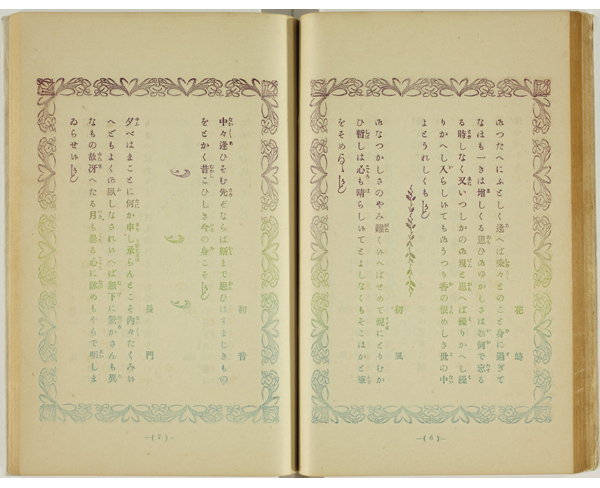 花崎
つたへにふとしく逢へば染々とのこと身に過ぎて
なほも一きは増しくる思ひのゆかしさは如何で忘る
る時しなく又いつしかの現と思へば繰りかへし繰
りかへし入らしてものうつり香の恨めしき世の中
よとうれしくも
初風
なつかしさのやみ難くへばせめて泥にとりむか
ひ暫しは心も晴らしてとよしなくもそこはかと
をそめ
—( 6 )—
初音
中々逢ひそむ先ならば斯くまで思ひはすまじきもの
をとかく昔こひしき今の身こそ
長門
夕べはまことに何か申し承らんとこそ内々たくみ
へどもよくの臥しなされへば無下に驚かさんも異
なもの故冴へたる月も曇る心に詠めもやらで明しま
ゐらせ
—( 7 )—